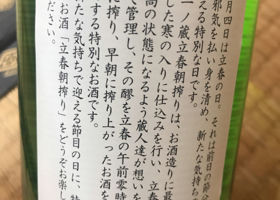 月四日は立春の日。それは前日の節分
邪気を払い身を清め、新たな気持ち
える特別な日です。
一ノ蔵立春朝搾りは、お酒造りに最
した寒の入りに仕込みを行い、立春
高の状態になるよう蔵人達が想いを
管理し、その醪を立春の午前零時
に搾り、早朝に搾り上がったお酒を
する特別なお酒です。
たな気持ちで迎える節目の日に、特
お酒「立春朝搾り」をどうぞお楽し
ださい。